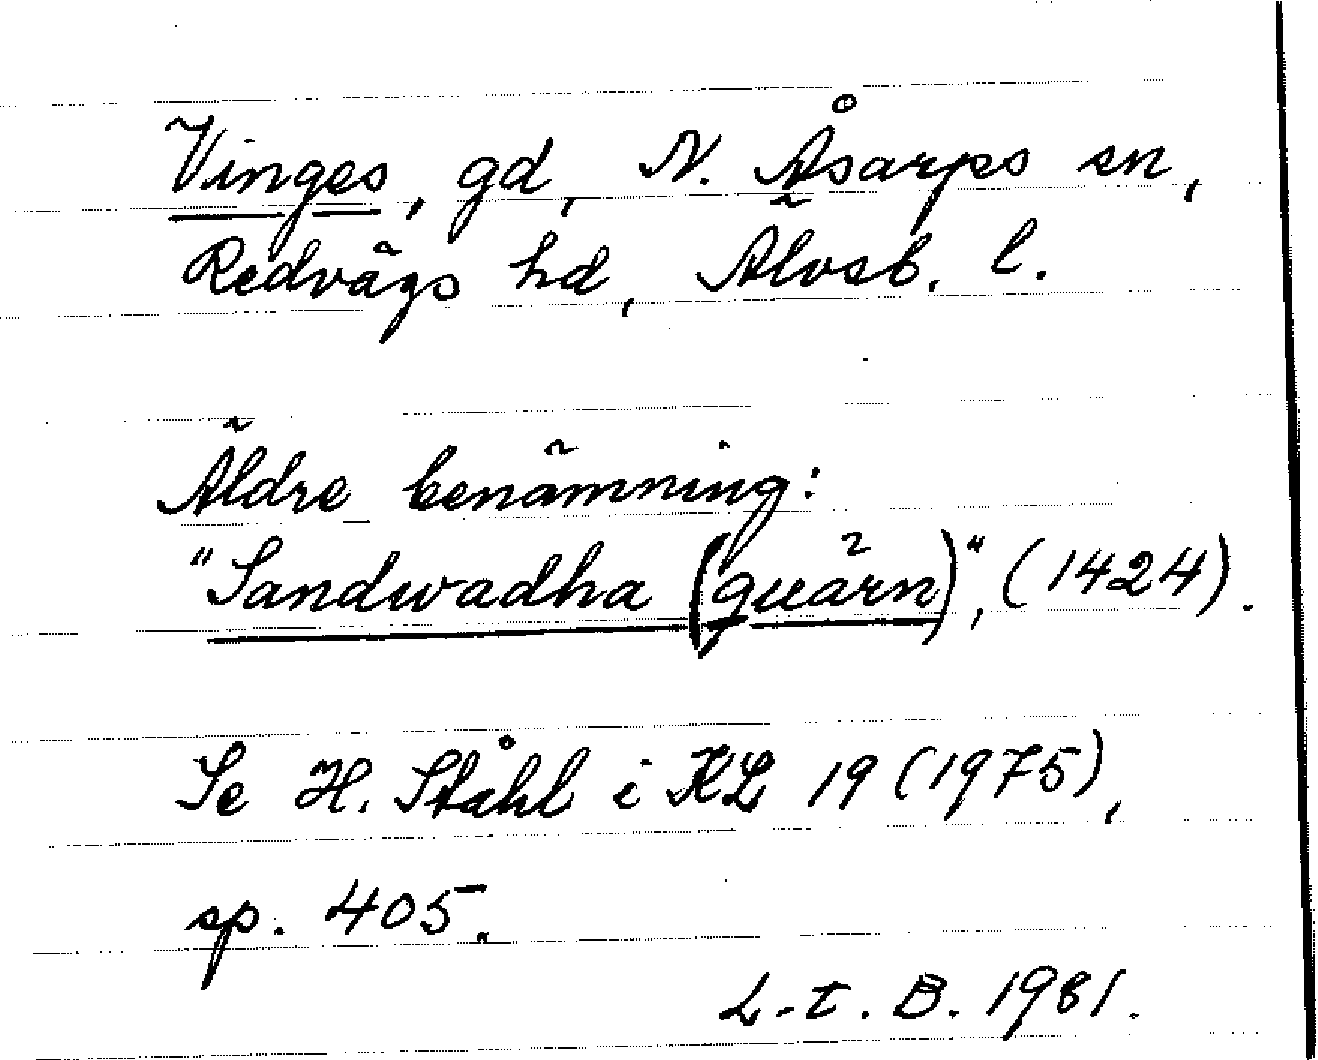 Vinges, gd, N. Åsarps sn,
Redvägs hd, Älvsb. l.
Äldre benämning:
"Sandwadha (quärn)", (1424).
Se H. Ståhl i KL 19 (1975),
sp. 405.
L-t. B. 1981.